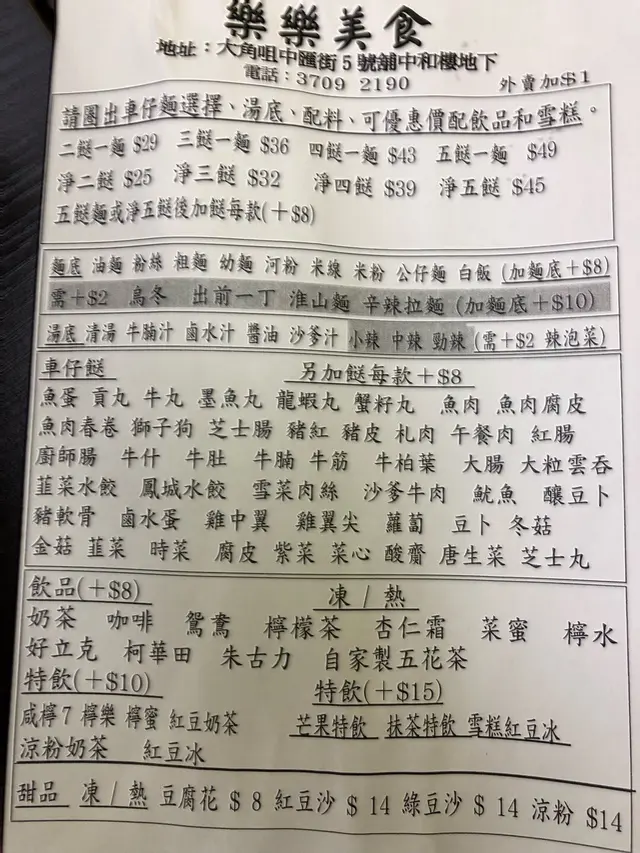 樂樂美食
地址：大角咀中匯街5號舖中和樓地下
電話：3709 2190
外賣加$1
請圈出車仔麵選擇、湯底、配料、可優惠價配飲品和雪糕。
二餸一麵 $29 三餸一麵 $36 四餸一麵 $43 五餸一麵 $49
淨二餸 $25 淨三餸 $32 淨四餸 $39 淨五餸 $45
五餸麵或淨五餸後加餸每款(＋$8)
麵底 油麵 粉絲 粗麵 幼麵 河粉 米線 米粉 公仔麵 白飯 (加麵底＋$8)
需＋$2 烏冬 出前一丁 淮山麵 辛辣拉麵 (加麵底＋$10)
湯底 清湯 牛腩汁 鹵水汁 醬油 沙爹汁 小辣 中辣 勁辣 (需＋$2 辣泡菜)
車仔餸 另加餸每款＋$8
魚蛋 貢丸 牛丸 墨魚丸 龍蝦丸 蟹籽丸 魚肉 魚肉腐皮
魚肉春卷 獅子狗 芝士腸 豬紅 豬皮 札肉 午餐肉 紅腸
廚師腸 牛什 牛肚 牛腩 牛筋 牛柏葉 大腸 大粒雲吞
韮菜水餃 鳳城水餃 雪菜肉絲 沙爹牛肉 魷魚 釀豆卜
豬軟骨 鹵水蛋 雞中翼 雞翼尖 蘿蔔 豆卜 冬菇
金菇 韮菜 時菜 腐皮 紫菜 菜心 酸齋 唐生菜 芝士丸
飲品(＋$8) 凍 / 熱
奶茶 咖啡 鴛鴦 檸檬茶 杏仁霜 菜蜜 檸水
好立克 柯華田 朱古力 自家製五花茶
特飲(＋$10) 特飲(＋$15)
咸檸7 檸樂 檸蜜 紅豆奶茶 芒果特飲 抹茶特飲 雪糕紅豆冰
涼粉奶茶 紅豆冰
甜品 凍 / 熱 豆腐花 $ 8 紅豆沙 $ 14 綠豆沙 $ 14 涼粉 $14